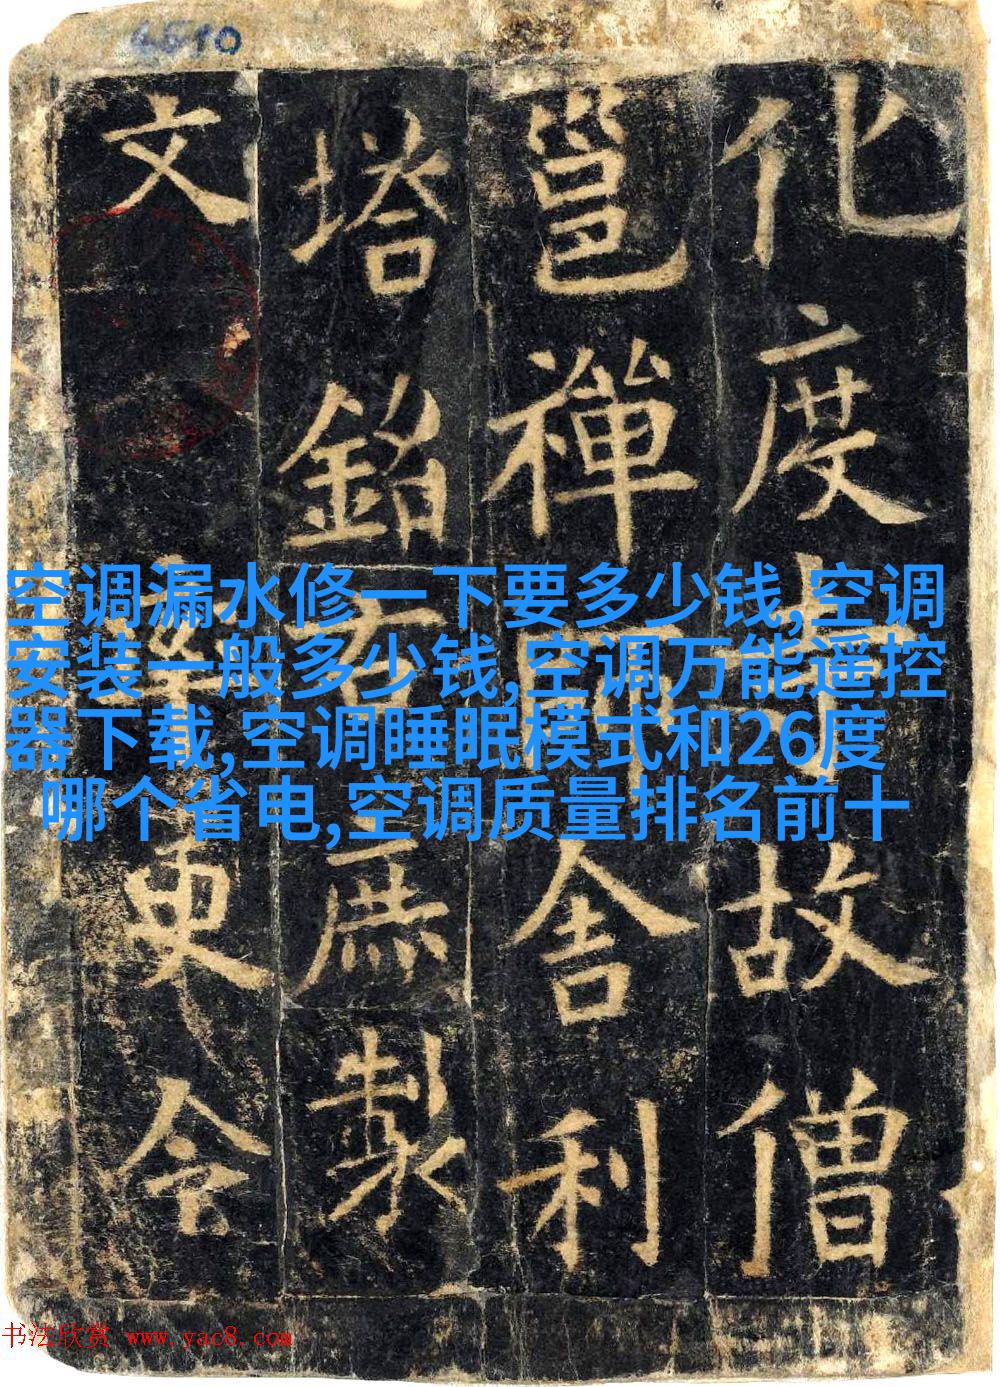 化度寺故僧
邕禪師舍利
塔銘右庶製
文率更令
空调漏水修一下要多少钱,空调
安装一般多少钱,空调万能遥控
器下载,空调睡眠模式和26度
哪个省电,空调质量排名前十
书法欣赏 www.yac8.com